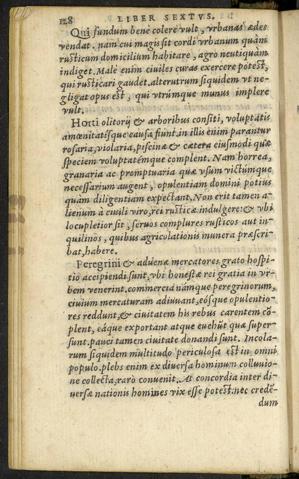 128 LIBER SEXTVS.
Qui fundum bene colere vult, vrbanas ædes
vendat. nam cui magis sit cordi vrbanum quàm
rusticum domicilium habitare, agro neutiquàm
indiget. Malè enim ciuiles curas exercere potest,
qui rusticari gaudet. alterutrum siquidem vt ne-
gligat opus est, qui vtrúmque munus implere
vult.
Horti olitorij & arboribus consiti, voluptatis
amœnitatísque causa fiunt. in illis enim parantur
rosaria, violaria, piscinæ & cætera eiusmodi quæ
speciem voluptatémque complent. Nam horrea,
granaria ac promptuaria quæ vsum victúmque
necessarium augent, opulentiam domini potius
quàm diligentiam expectant. Non erit tamen a-
lienum à ciuili viro, rei rusticæ indulgere: & vbi
locupletior sit, seruos complures rusticos aut in-
quilinos, quibus agricolationis munera præscri-
bat, habere.
Peregrini & aduenæ mercatores grato hospi-
tio accipiendi sunt, vbi honestæ rei gratia in vr-
bem venerint. commercia námque peregrinorum,
ciuium mercaturam adiuuant, eósque opulentio-
res reddunt, & ciuitatem his rebus carentem cō-
plent, eáque exportant atque euehūt quæ super-
sunt. pauci tamen ciuitate donandi sunt. Incola-
rum siquidem multitudo periculosa est in omni
populo. plebs enim ex diuersa hominum colluuio-
ne collecta, rarò conuenit. At concordia inter di-
uersæ nationis homines vix esse potest. nec credē-
dum